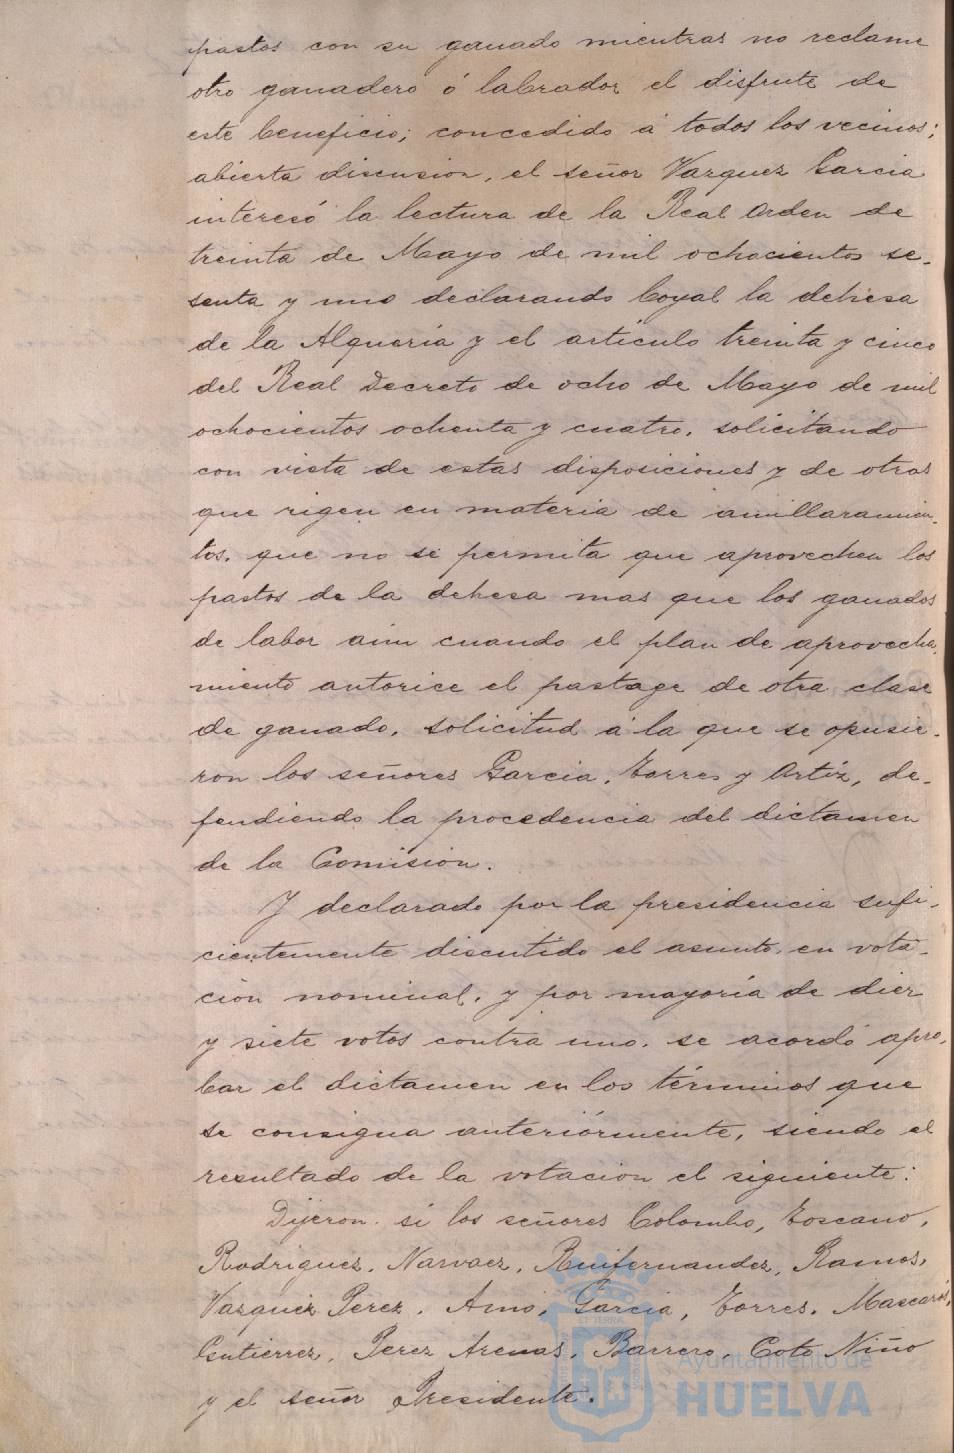 pastos con su ganado mientras no reclame
otro ganadero ó labrador el disfrute de
este beneficio; concedido á todos los vecinos;
abierta discusion, el señor Vazquez Garcia
interesó la lectura de la Real Orden de
treinta de Mayo de mil ochocientos se-
senta y uno declarando boyal la dehesa
de la Alquería y el articulo treinta y cinco
del Real Decreto de ocho de Mayo de mil
ochocientos ochenta y cuatro, solicitando
con vista de estas disposiciones y de otras
que rigen en materia de amillaramien-
tos, que no se permita que aprovechen los
pastos de la dehesa mas que los ganados
de labor aun cuando el plan de aprovecha-
miento autorice el pastage de otra clase
de ganado, solicitud á la que se opusie-
ron los señores Garcia, Torres y Ortíz, de-
fendiendo la procedencia del dictamen
de la Comisión.
Y declarado por la presidencia sufi-
cientemente discutido el asunto, en vota-
ción nominal, y por mayoría de diez
y siete votos contra uno, se acordó apro-
bar el dictamen en los términos que
se consigna anteriórmente, siendo el
resultado de la votación el siguiente:
Dijeron si los señores Colombo, Toscano,
Rodriguez, Narvaez, Ruifernandez, Ramos,
Vazquez Perez, Amo, Garcia, Torres, Mascarós,
Gutierrez, Perez Arenas, Barrero, Coto Niño
y el señor Presidente.
ET TERRÆ
Ayuntamiento de
HUELVA